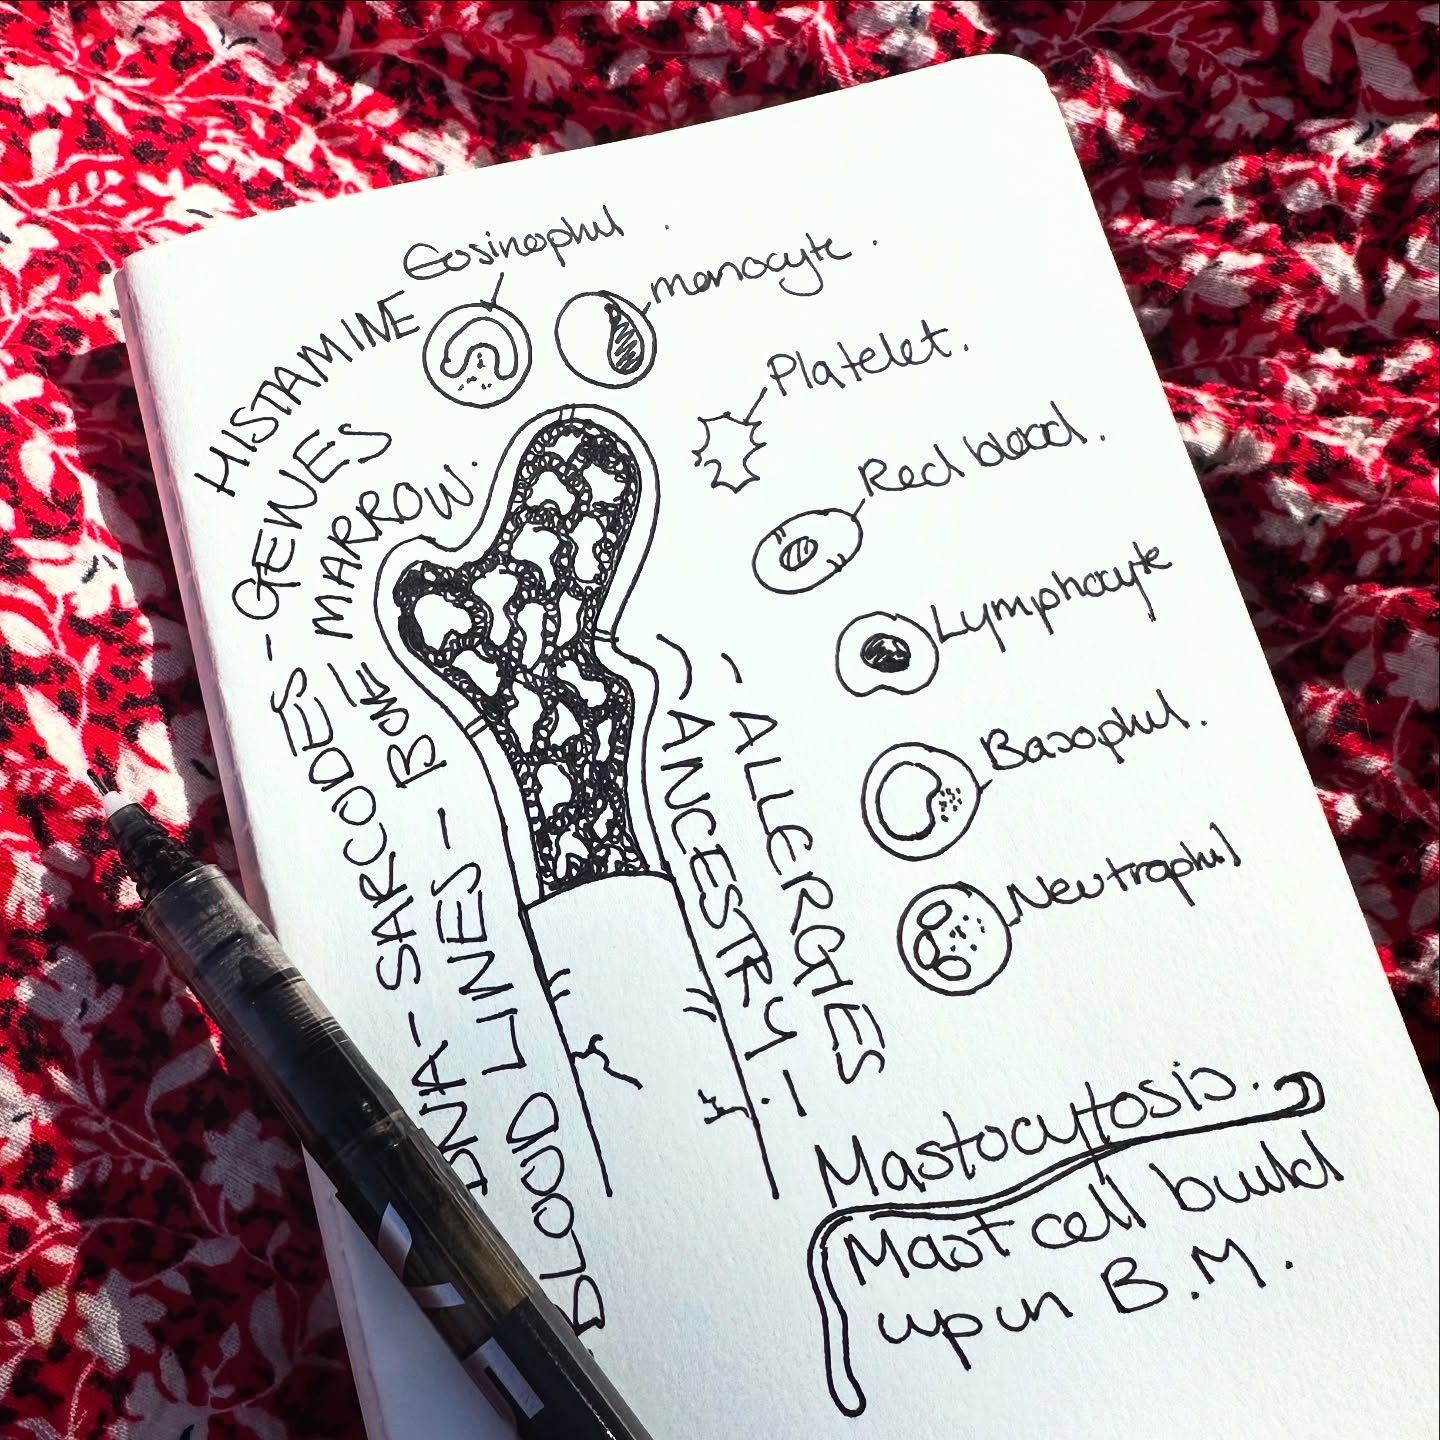 Eosinophil
monocyte.
Platelet.
Red blood.
Lymphocyte
Basophil.
Neutrophil
HISTAMINE
DNA - SARCODES - GENES
BLOOD LINES - BONE MARROW.
- ANCESTRY.
- ALLERGIES -
Mastocytosis.
Mast cell build
up in B.M.